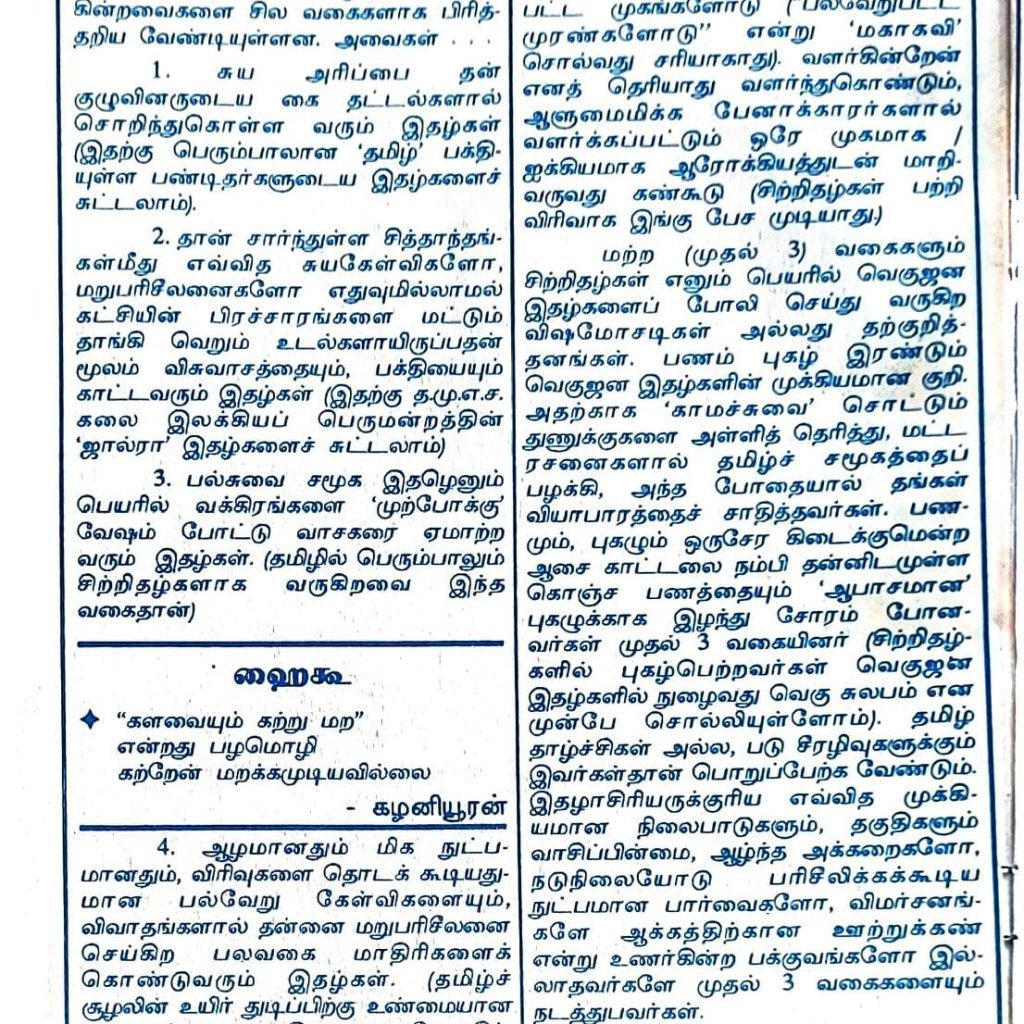 கின்றவைகளை சில வகைகளாக பிரித்-
தறிய வேண்டியுள்ளன. அவைகள் . . .
1. சுய அரிப்பை தன்
குழுவினருடைய கை தட்டல்களால்
சொறிந்துகொள்ள வரும் இதழ்கள்
(இதற்கு பெரும்பாலான ‘தமிழ்’ பக்தி-
யுள்ள பண்டிதர்களுடைய இதழ்களைச்
சுட்டலாம்).
2. தான் சார்ந்துள்ள சித்தாந்தங்-
கள்மீது எவ்வித சுயகேள்விகளோ,
மறுபரிசீலனைகளோ எதுவுமில்லாமல்
கட்சியின் பிரச்சாரங்களை மட்டும்
தாங்கி வெறும் உடல்களாயிருப்பதன்
மூலம் விசுவாசத்தையும், பக்தியையும்
காட்டவரும் இதழ்கள் (இதற்கு த.மு.எ.ச.
கலை இலக்கியப் பெருமன்றத்தின்
‘ஜால்ரா’ இதழ்களைச் சுட்டலாம்)
3. பல்சுவை சமூக இதழெனும்
பெயரில் வக்கிரங்களை ‘முற்போக்கு’
வேஷம் போட்டு வாசகரை ஏமாற்ற
வரும் இதழ்கள். (தமிழில் பெரும்பாலும்
சிற்றிதழ்களாக வருகிறவை இந்த
வகைதான்)
ஹைகூ
✦ “களவையும் கற்று மற”
என்றது பழமொழி
கற்றேன் மறக்கமுடியவில்லை
- கழனியூரன்
4. ஆழமானதும் மிக நுட்ப-
மானதும், விரிவுகளை தொடக் கூடியது-
மான பல்வேறு கேள்விகளையும்,
விவாதங்களால் தன்னை மறுபரிசீலனை
செய்கிற பலவகை மாதிரிகளைக்
கொண்டுவரும் இதழ்கள். (தமிழ்ச்
சூழலின் உயிர் துடிப்பிற்கு உண்மையான
பட்ட முகங்களோடு (“பல்வேறுபட்ட
முரண்களோடு” என்று ‘மகாகவி’
சொல்வது சரியாகாது). வளர்கின்றேன்
எனத் தெரியாது வளர்ந்துகொண்டும்,
ஆளுமைமிக்க பேனாக்காரர்களால்
வளர்க்கப்பட்டும் ஒரே முகமாக /
ஐக்கியமாக ஆரோக்கியத்துடன் மாறி-
வருவது கண்கூடு (சிற்றிதழ்கள் பற்றி
விரிவாக இங்கு பேச முடியாது.)
மற்ற (முதல் 3) வகைகளும்
சிற்றிதழ்கள் எனும் பெயரில் வெகுஜன
இதழ்களைப் போலி செய்து வருகிற
விஷமோசடிகள் அல்லது தற்குறித்-
தனங்கள். பணம் புகழ் இரண்டும்
வெகுஜன இதழ்களின் முக்கியமான குறி.
அதற்காக ‘காமச்சுவை’ சொட்டும்
துணுக்குகளை அள்ளித் தெரித்து, மட்ட
ரசனைகளால் தமிழ்ச் சமூகத்தைப்
பழக்கி, அந்த போதையால் தங்கள்
வியாபாரத்தைச் சாதித்தவர்கள். பண-
மும், புகழும் ஒருசேர கிடைக்குமென்ற
ஆசை காட்டலை நம்பி தன்னிடமுள்ள
கொஞ்ச பணத்தையும் ‘ஆபாசமான’
புகழுக்காக இழந்து சோரம் போன-
வர்கள் முதல் 3 வகையினர் (சிற்றிதழ்-
களில் புகழ்பெற்றவர்கள் வெகுஜன
இதழ்களில் நுழைவது வெகு சுலபம் என
முன்பே சொல்லியுள்ளோம்). தமிழ்
தாழ்ச்சிகள் அல்ல, படு சீரழிவுகளுக்கும்
இவர்கள்தான் பொறுப்பேற்க வேண்டும்.
இதழாசிரியருக்குரிய எவ்வித முக்கி-
யமான நிலைபாடுகளும், தகுதிகளும்
வாசிப்பின்மை, ஆழ்ந்த அக்கறைகளோ,
நடுநிலையோடு பரிசீலிக்கக்கூடிய
நுட்பமான பார்வைகளோ, விமர்சனங்-
களே ஆக்கத்திற்கான ஊற்றுக்கண்
என்று உணர்கின்ற பக்குவங்களோ இல்-
லாதவர்களே முதல் 3 வகைகளையும்
நடத்துபவர்கள்.